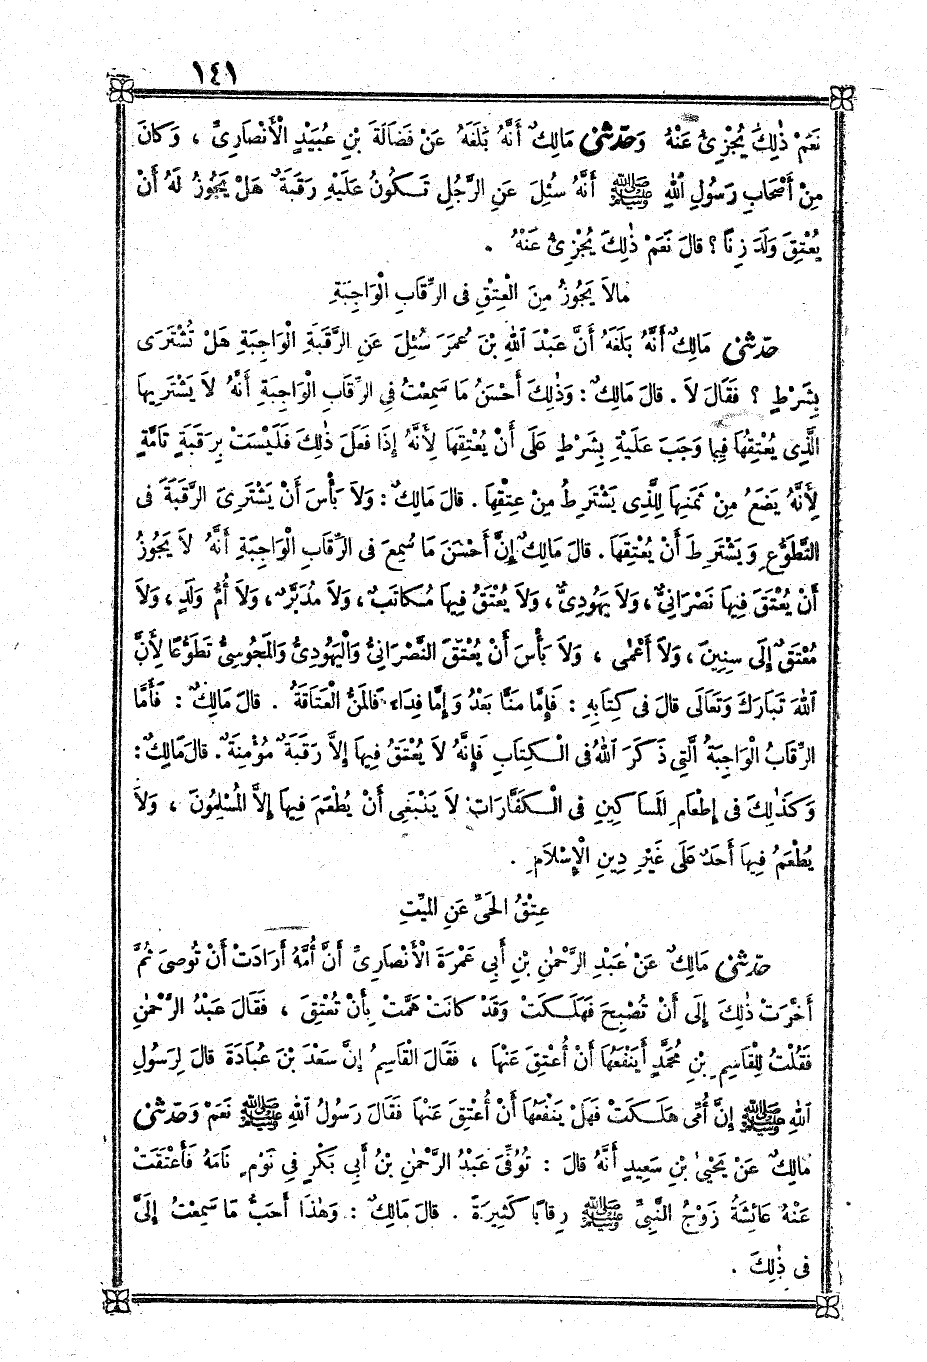 ١٤١
نَعَمْ ذٰلِكَ يُجْزِئُ عَنْهُ وَحَدَّثَنِي مَالِكٌ أَنَّهُ بَلَغَهُ عَنْ فَضَالَةَ بْنِ عُبَيْدٍ الْأَنْصَارِيِّ ، وَكَانَ
مِنْ أَصْحَابِ رَسُولِ اللّٰهِ ﷺ أَنَّهُ سُئِلَ عَنِ الرَّجُلِ تَكُونُ عَلَيْهِ رَقَبَةٌ هَلْ يَجُوزُ لَهُ أَنْ
يُعْتِقَ وَلَدَ زِنًا ؟ قَالَ نَعَمْ ذٰلِكَ يُجْزِئُ عَنْهُ .
مَالَا يَجُوزُ مِنَ الْعِتْقِ فِى الرِّقَابِ الْوَاجِبَةِ
حَدَّثَنِي مَالِكٌ أَنَّهُ بَلَغَهُ أَنَّ عَبْدَ اللّٰهِ بْنَ عُمَرَ سُئِلَ عَنِ الرَّقَبَةِ الْوَاجِبَةِ هَلْ تُشْتَرَى
بِشَرْطٍ ؟ فَقَالَ لَا . قَالَ مَالِكٌ : وَذٰلِكَ أَحْسَنُ مَا سَمِعْتُ فِي الرِّقَابِ الْوَاجِبَةِ أَنَّهُ لَا يَشْتَرِيهَا
الَّذِى يُعْتِقُهَا فِيمَا وَجَبَ عَلَيْهِ بِشَرْطٍ عَلَى أَنْ يُعْتِقَهَا لِأَنَّهُ إِذَا فَعَلَ ذٰلِكَ فَلَيْسَتْ بِرَقَبَةٍ تَامَّةٍ
لِأَنَّهُ يَضَعُ مِنْ ثَمَنِهَا لِلَّذِى يَشْتَرِطُ مِنْ عِتْقِهَا . قَالَ مَالِكٌ : وَلَا بَأْسَ أَنْ يَشْتَرِىَ الرَّقَبَةَ فِى
التَّطَوُّعِ وَيَشْتَرِطَ أَنْ يُعْتِقَهَا . قَالَ مَالِكٌ إِنَّ أَحْسَنَ مَا سُمِعَ فِى الرِّقَابِ الْوَاجِبَةِ أَنَّهُ لَا يَجُوزُ
أَنْ يُعْتَقَ فِيهَا نَصْرَانِيٌّ ، وَلَا يَهُودِيٌّ ، وَلَا يُعْتَقُ فِيهَا مُكَاتَبٌ ، وَلَا مُدَبَّرٌ ، وَلَا أُمُّ وَلَدٍ ، وَلَا
مُعْتَقٌ إِلَى سِنِينَ ، وَلَا أَعْمٰى ، وَلَا بَأْسَ أَنْ يُعْتَقَ النَّصْرَانِيُّ وَالْيَهُودِيُّ وَالْمَجُوسِيُّ تَطَوُّعًا لِأَنَّ
اللّٰهَ تَبَارَكَ وَتَعَالَى قَالَ فِى كِتَابِهِ : فَإِمَّا مَنًّا بَعْدُ وَإِمَّا فِدَاءً فَالْمَنُّ الْعَتَاقَةُ . قَالَ مَالِكٌ : فَأَمَّا
الرِّقَابُ الْوَاجِبَةُ الَّتِى ذَكَرَ اللّٰهُ فِى الْكِتَابِ فَإِنَّهُ لَا يُعْتَقُ فِيهَا إِلَّا رَقَبَةٌ مُؤْمِنَةٌ . قَالَ مَالِكٌ :
وَكَذٰلِكَ فِى إِطْعَامِ الْمَسَاكِينِ فِى الْكَفَّارَاتِ لَا يَنْبَغِى أَنْ يُطْعَمَ فِيهَا إِلَّا الْمُسْلِمُونَ ، وَلَا
يُطْعَمُ فِيهَا أَحَدٌ عَلَى غَيْرِ دِينِ الْإِسْلَامِ .
عِتْقُ الْحَىِّ عَنِ الْمَيِّتِ
حَدَّثَنِي مَالِكٌ عَنْ عَبْدِ الرَّحْمٰنِ بْنِ أَبِي عَمْرَةَ الْأَنْصَارِيِّ أَنَّ أُمَّهُ أَرَادَتْ أَنْ تُوصِىَ ثُمَّ
أَخَّرَتْ ذٰلِكَ إِلَى أَنْ تُصْبِحَ فَهَلَكَتْ وَقَدْ كَانَتْ هَمَّتْ بِأَنْ تُعْتِقَ ، فَقَالَ عَبْدُ الرَّحْمٰنِ
فَقُلْتُ لِلْقَاسِمِ بْنِ مُحَمَّدٍ أَيَنْفَعُهَا أَنْ أُعْتِقَ عَنْهَا ، فَقَالَ الْقَاسِمُ إِنَّ سَعْدَ بْنَ عُبَادَةَ قَالَ لِرَسُولِ
اللّٰهِ ﷺ إِنَّ أُمِّى هَلَكَتْ فَهَلْ يَنْفَعُهَا أَنْ أُعْتِقَ عَنْهَا فَقَالَ رَسُولُ اللّٰهِ ﷺ نَعَمْ وَحَدَّثَنِي
مَالِكٌ عَنْ يَحْيَىٰ بْنِ سَعِيدٍ أَنَّهُ قَالَ : تُوُفِّىَ عَبْدُ الرَّحْمٰنِ بْنُ أَبِي بَكْرٍ فِي نَوْمٍ نَامَهُ فَأَعْتَقَتْ
عَنْهُ عَائِشَةُ زَوْجُ النَّبِيِّ ﷺ رِقَابًا كَثِيرَةً . قَالَ مَالِكٌ : وَهٰذَا أَحَبُّ مَا سَمِعْتُ إِلَىَّ
فِى ذٰلِكَ .